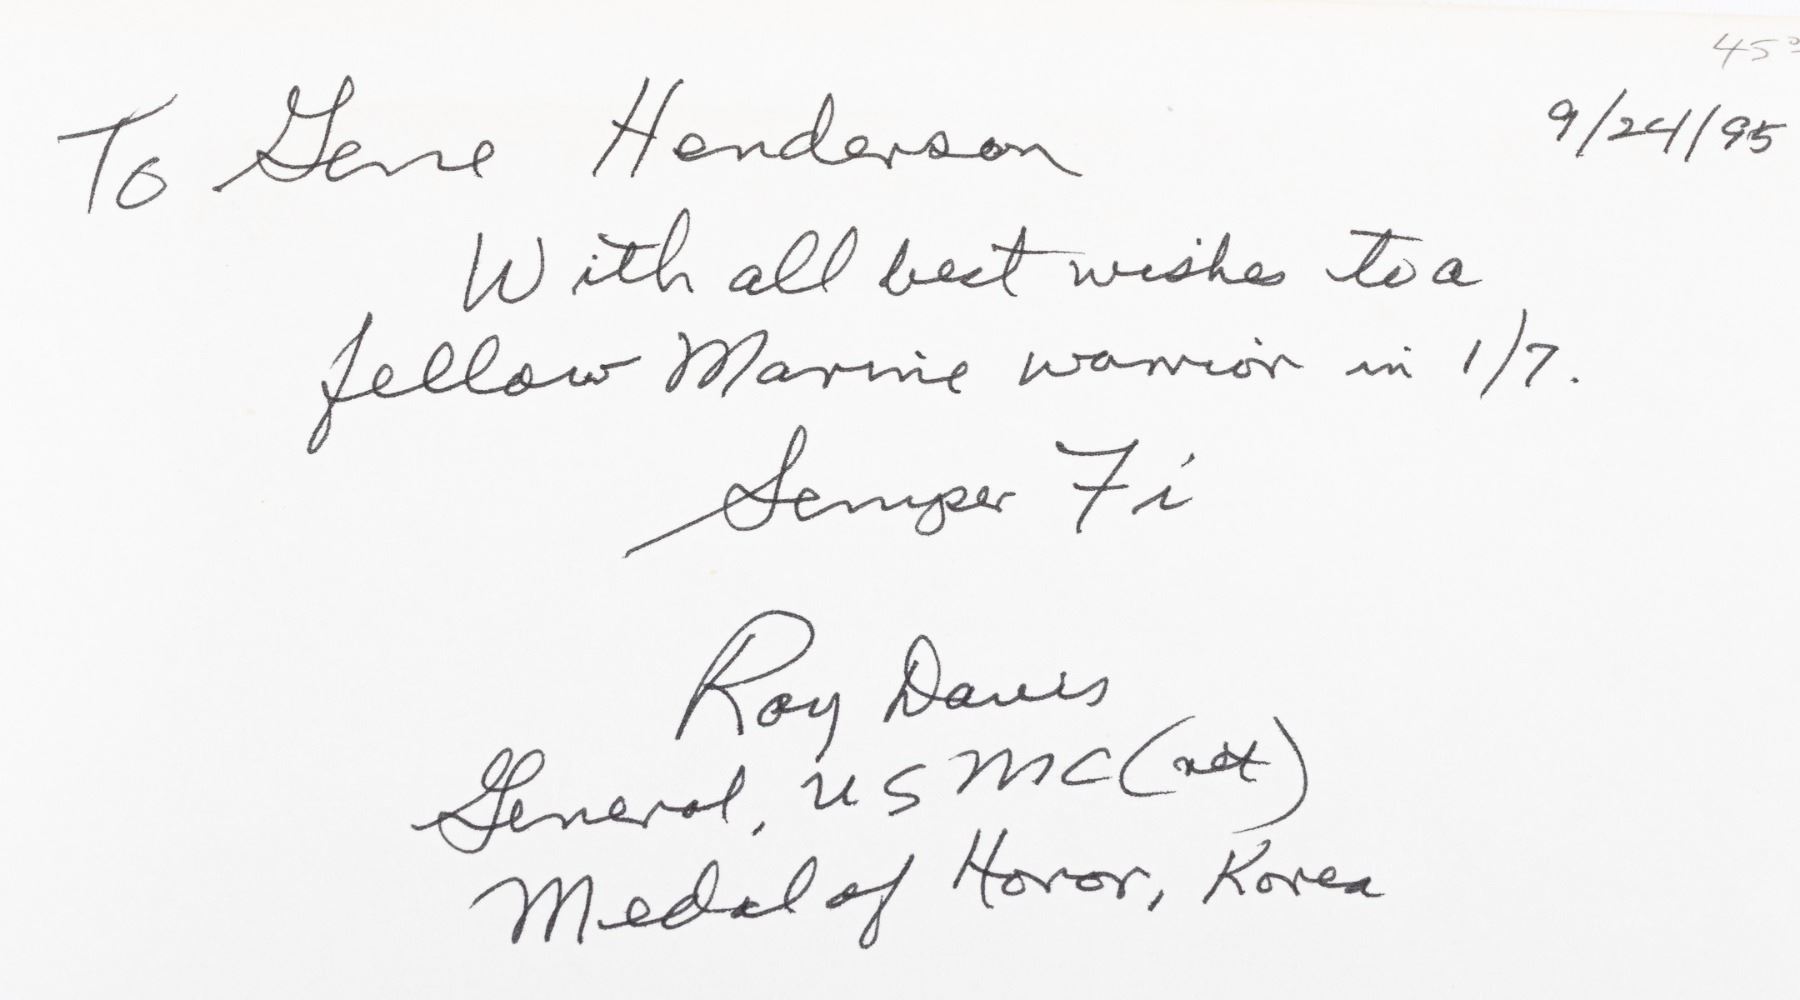 45
9/24/95
To Gene Henderson
With all best wishes to a
fellow Marine warrior in 1/7.
Semper Fi
Ray Davis
General, USMC (ret)
Medal of Honor, Korea